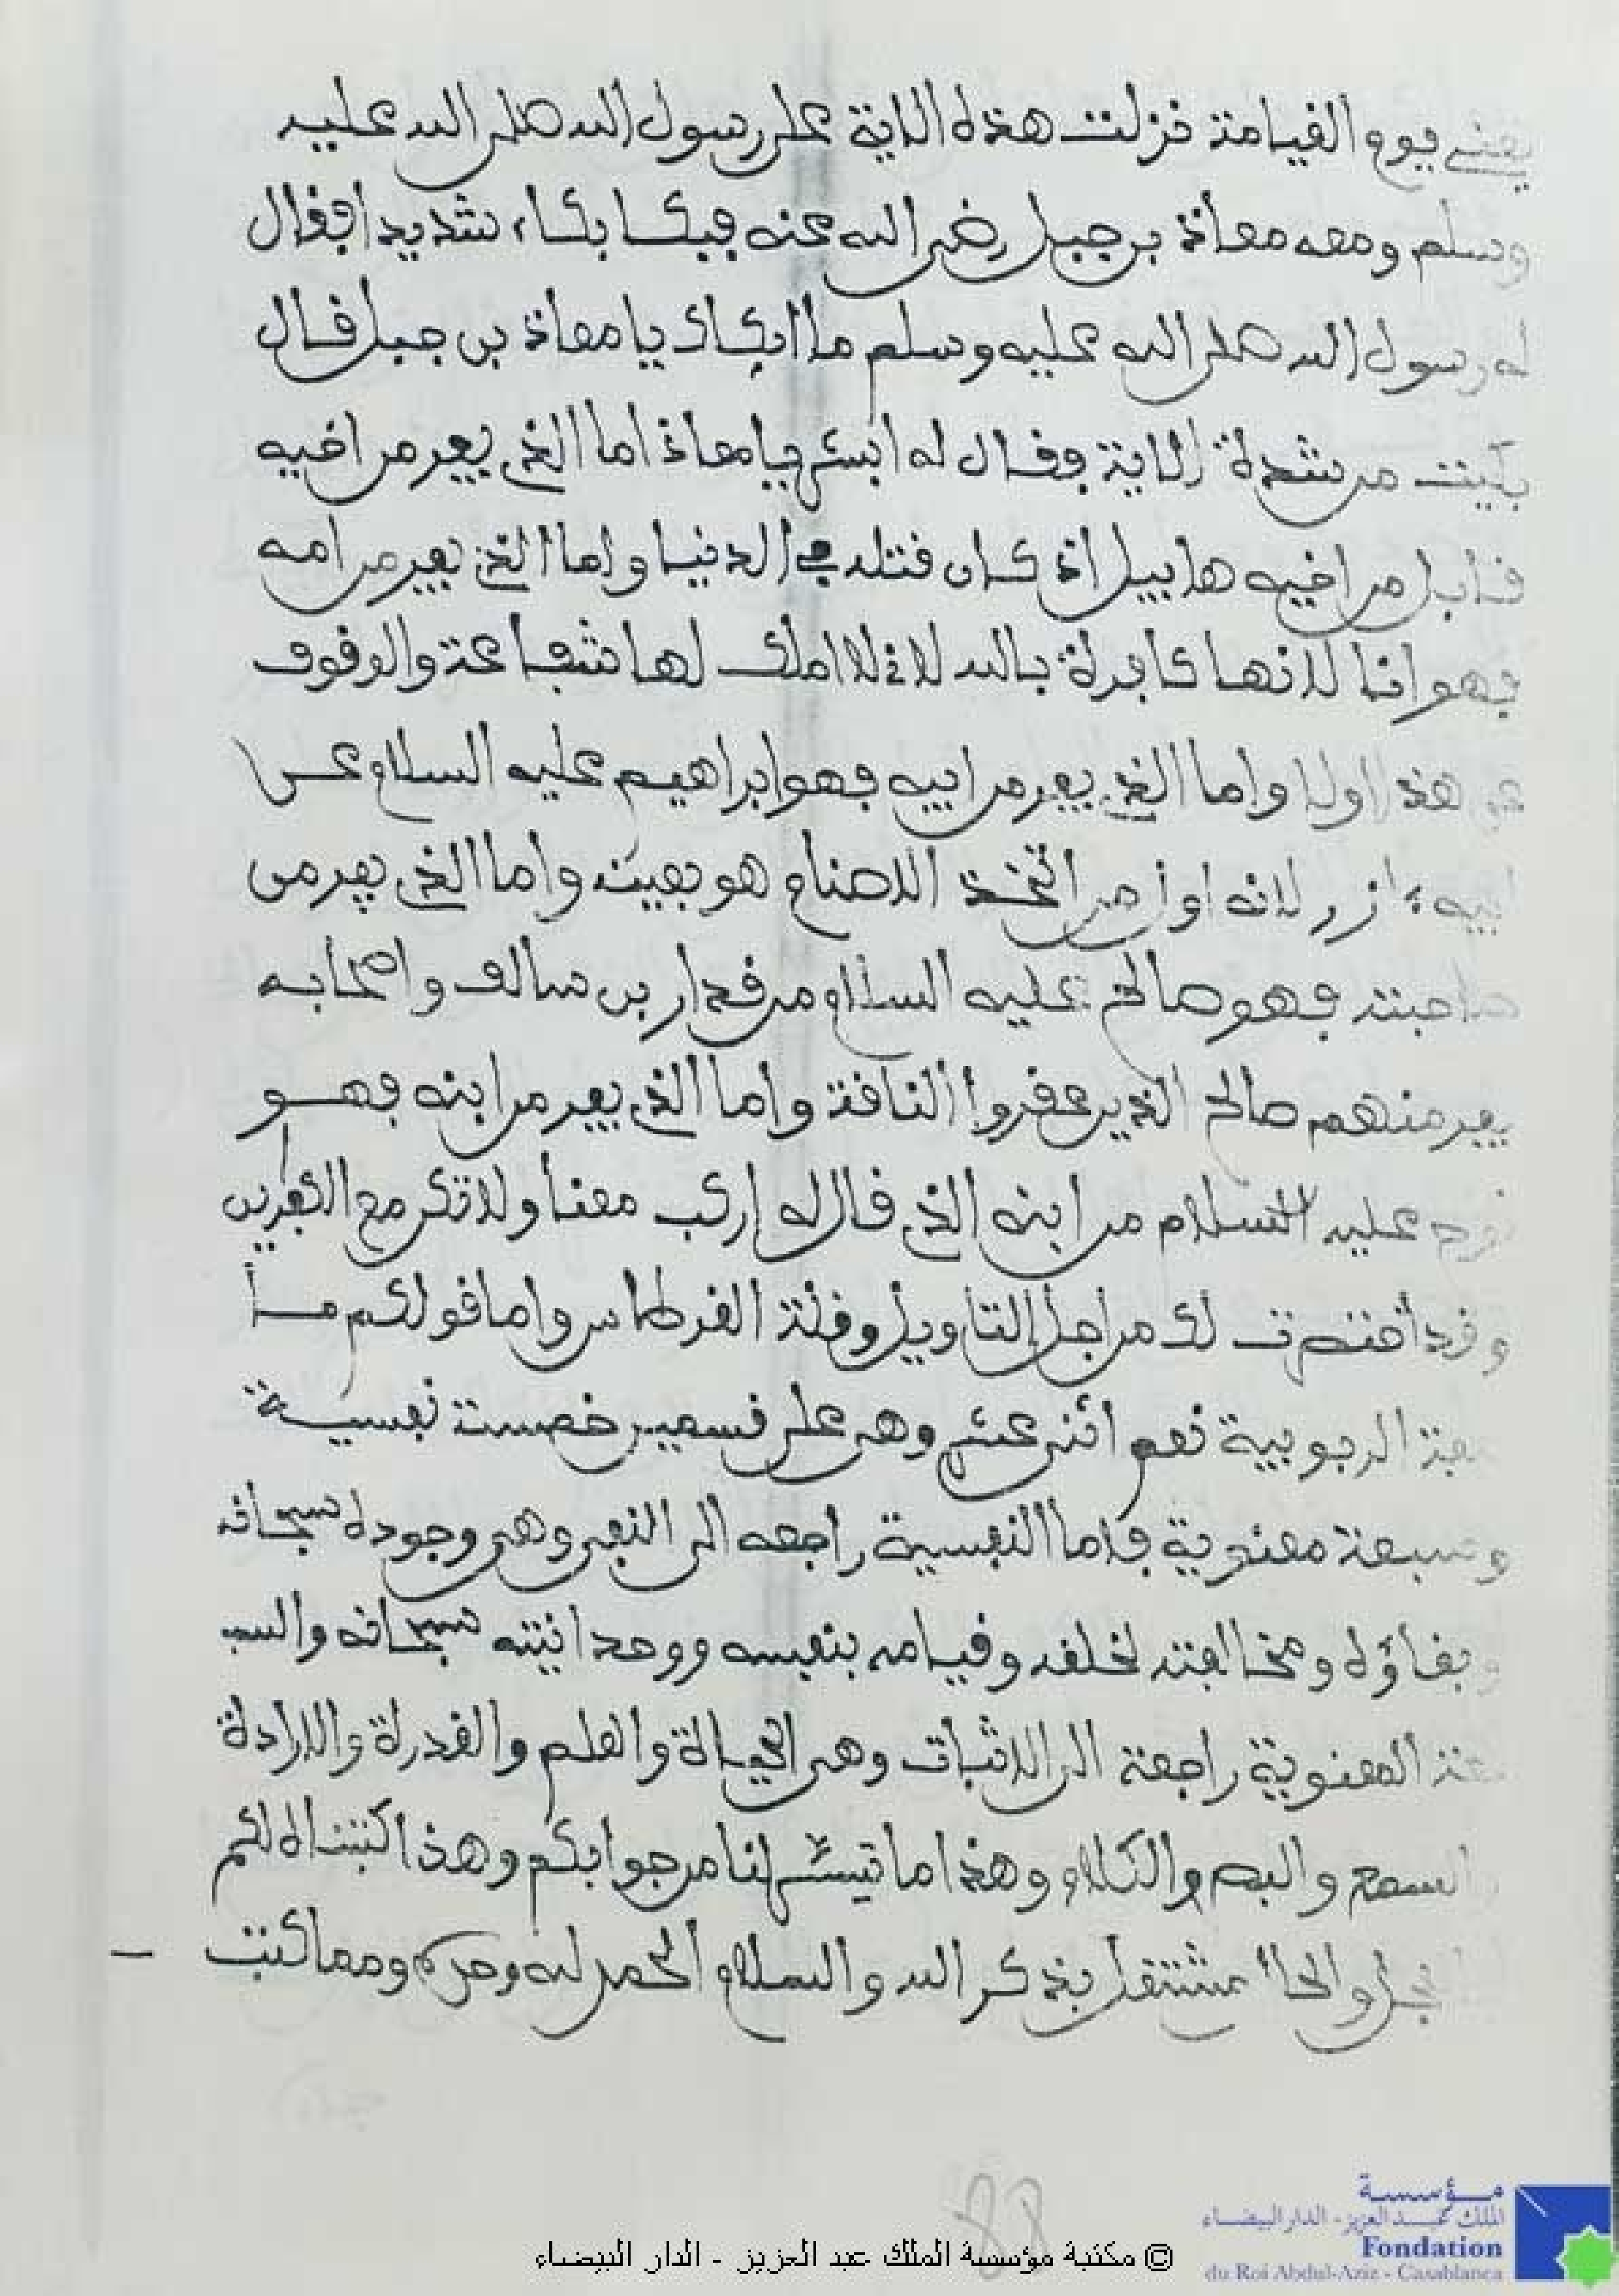 يعني يوم القيامة نزلت هذه الاية على رسول الله صلى الله عليه
وسلم ومعه معاذ بن جبل رضي الله عنه فبكا بكاء شديدا فقال
له رسول الله صلى الله عليه وسلم ما ابكاك يا معاذ بن جبل قال
بكيت من شدة الاية فقال له ابشر يا معاذ اما الذي يفر من اخيه
قابل من اخيه هابيل اذ كان قتله في الدنيا واما الذي يفر من امه
فهو انا لانها كافرة بالله لاني لا املك لها شفاعة والوقوف
هذا اولا واما الذي يفر من ابيه فهو ابراهيم عليه السلام عن
ابيه ءازر لانه اول من اتخذ الاصنام هو بعينه واما الذي يفر من
صاحبته فهو صالح عليه السلام من قدار بن سالف واصحابه
يفر منهم صالح الذين عقروا الناقة واما الذي يفر من ابنه فهو
نوح عليه السلام من ابنه الذي قال له اركب معنا ولا تكن مع الكفرين
وقد اختصرت لك من اجل التاويل وقلة القرطاس واما قولكم ما
صفة الربوبية نعم اثنى عشر وهي على قسمين خمسة نفسية
وسبعة معنوية فاما النفسية راجعه الى النفس وهي وجوده سبحانه
وبقاؤه ومخالفته لخلقه وقيامه بنفسه ووحدانيته سبحانه والسبـ
ـعة المعنوية راجعة الى الاثبات وهي الحياة والعلم والقدرة والارادة
والسمع والبصر والكلام وهذا ما تيسر لنا من جوابكم وهذا كتبناه لكم
والحال مشتغل بذكر الله والسلام الحمد لله وحده ومما كتب
88
© مكتبة مؤسسة الملك عبد العزيز - الدار البيضاء
مؤسسة
الملك عبد العزيز - الدار البيضاء
Fondation
du Roi Abdul-Aziz - Casablanca